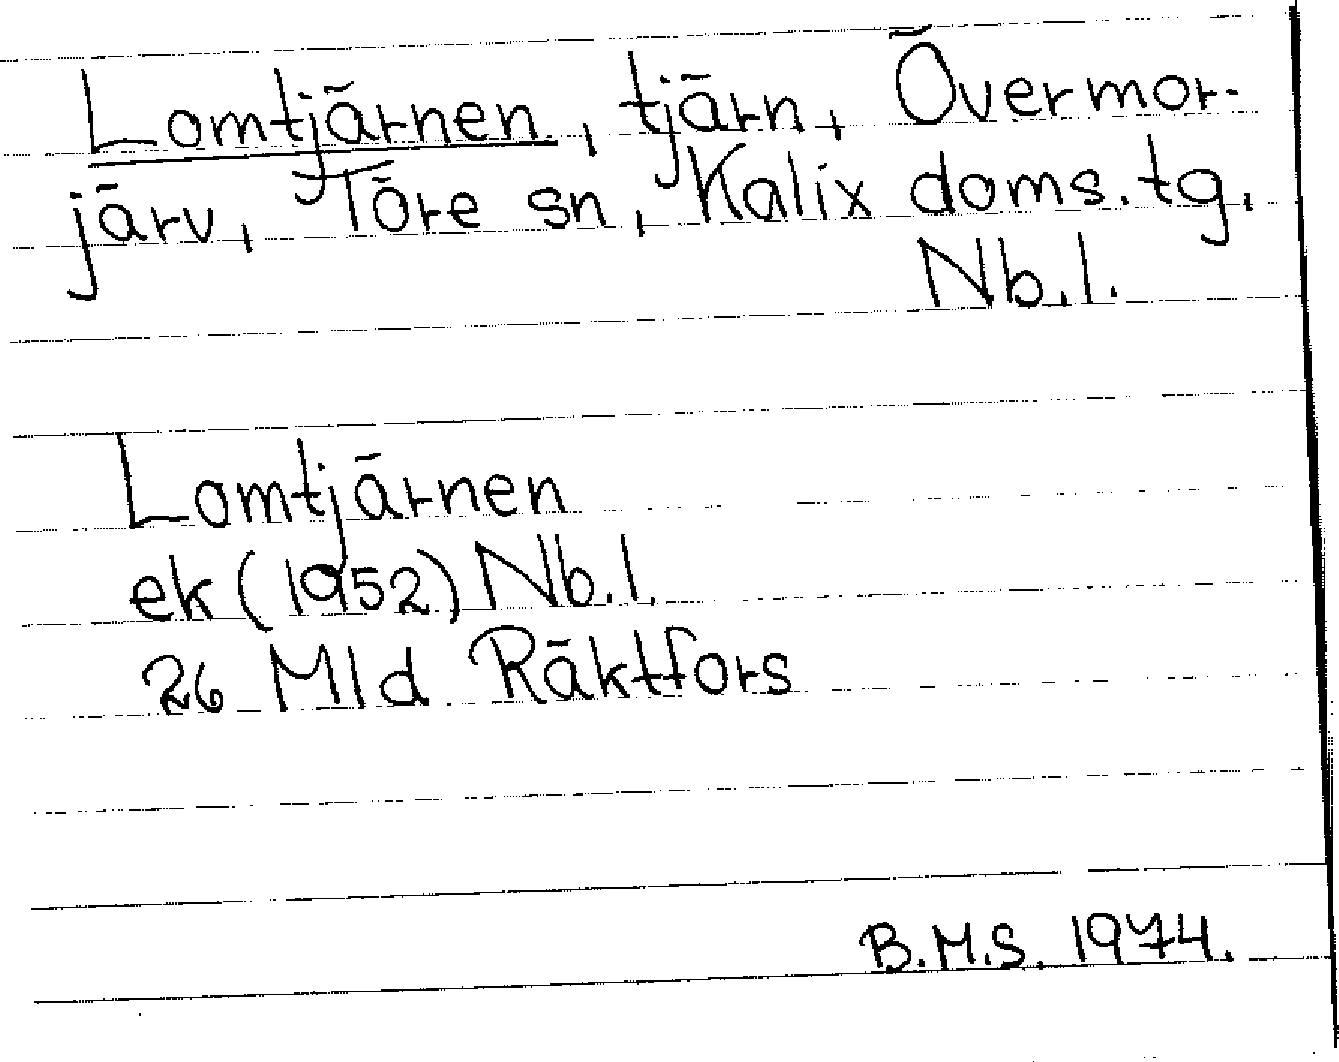 Lomtjärnen, tjärn, Övermor-
järv, Töre sn, Kalix doms.tg.
Nb.l.
Lomtjärnen
ek (1952) Nb.l.
26 Mld Räktfors
B.M.S. 1974.